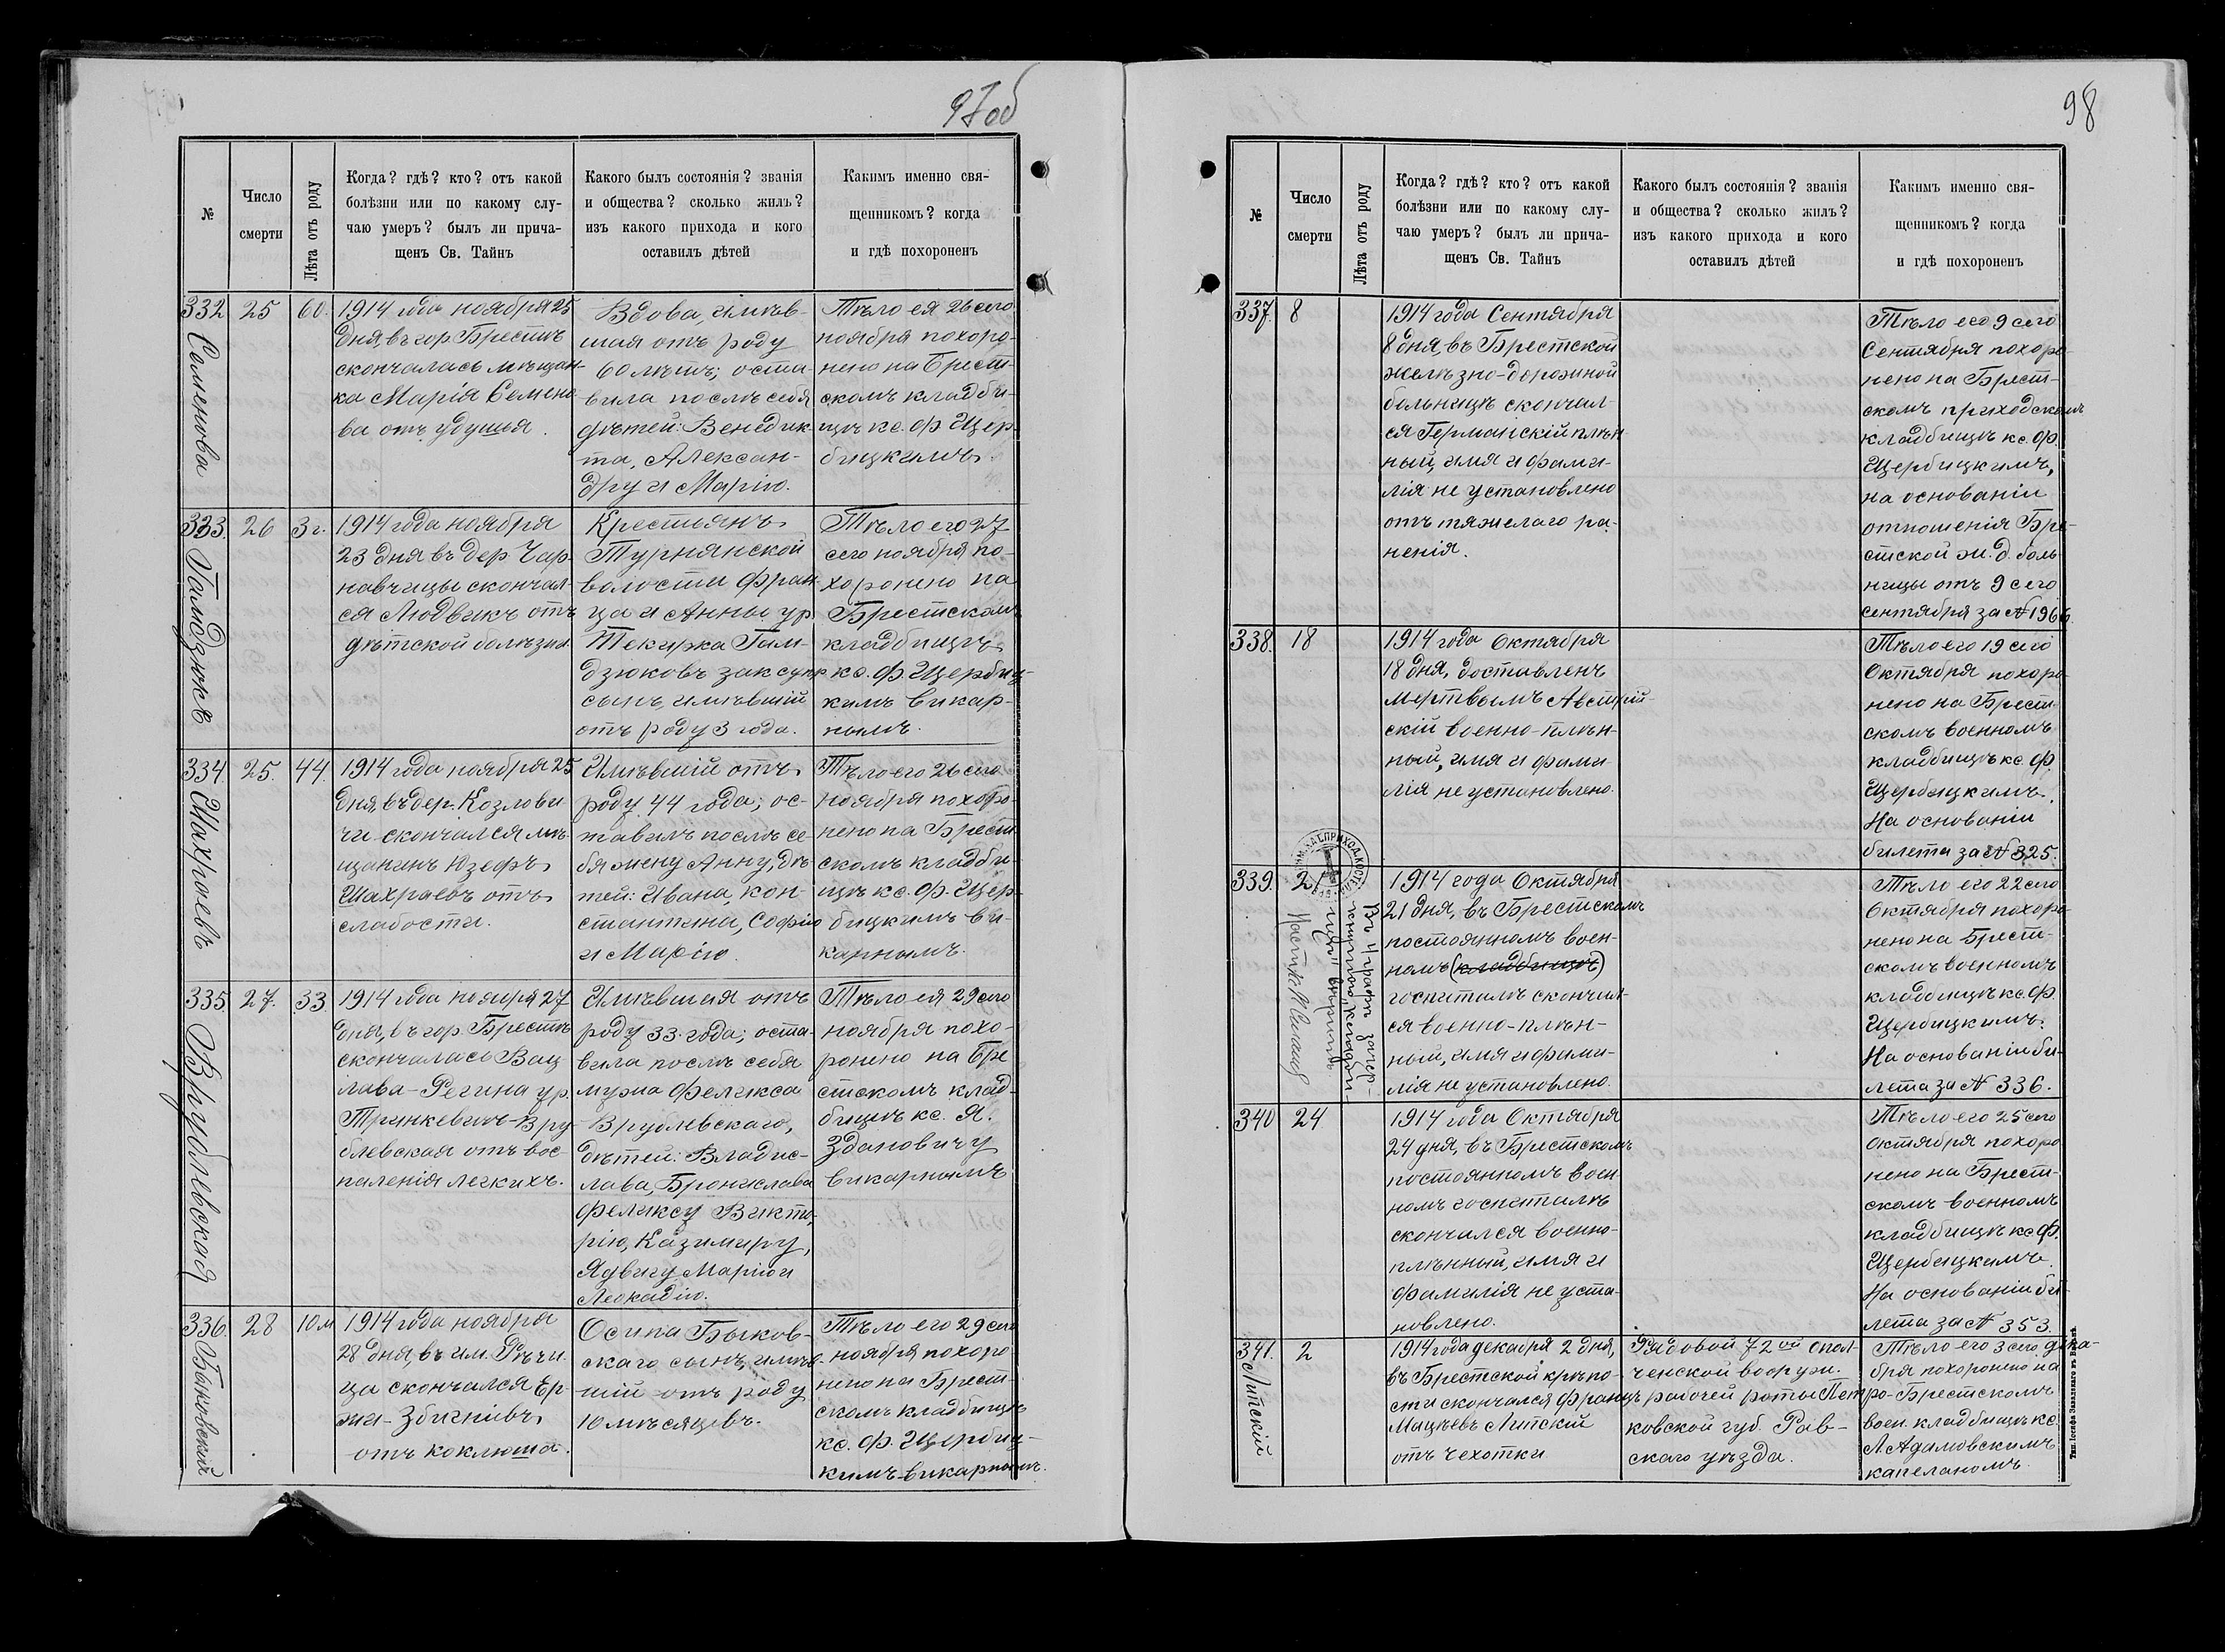 97 об
№
Число
смерти
Лѣта отъ роду
Когда? гдѣ? кто? отъ какой
болѣзни или по какому слу-
чаю умеръ? былъ ли прича-
щенъ Св. Тайнъ
Какого былъ состоянія? званія
и общества? сколько жилъ?
изъ какого прихода и кого
оставилъ дѣтей
Какимъ именно свя-
щенникомъ? когда
и гдѣ похороненъ
332
Семенова
25
60.
1914 года ноября 25
дня, въ гор. Брестѣ
скончалась мѣщан-
ка Марія Семено-
ва отъ удушья.
Вдова, имѣв-
шая отъ роду
60 лѣтъ; оста-
вила послѣ себя
дѣтей: Венедик-
та, Алексан-
дру и Марію.
Тѣло ея 26 сего
ноября похоро-
нено на Брест-
скомъ кладби-
щѣ кс. Ф. Щер-
бицкимъ.
333.
Гамдзюкъ
26
3 г.
1914 года ноября
23 дня въ дер. Чар-
навчицы скончал-
ся Людвикъ отъ
дѣтской болѣзни.
Крестьянъ
Турнянской
волости Фран-
ца и Анны ур.
Текирка Гам-
дзюковъ зак. супр.
сынъ, имѣвшій
отъ роду 3 года.
Тѣло его 27
сего ноября по-
хоронено на
Брестскомъ
кладбищѣ
кс. Ф. Щербиц-
кимъ викар-
нымъ.
334
Шахраевъ
25.
44.
1914 года ноября 25
дня, въ дер. Козлови-
чи скончался мѣ-
щанинъ Юзефъ
Шахраевъ отъ
слабости.
Имѣвшій отъ
роду 44 года; ос-
тавилъ послѣ се-
бя жену Анну, дѣ-
тей: Ивана, Кон-
стантина, Софію
и Марію.
Тѣло его 26 сего
ноября похоро-
нено на Брест-
скомъ кладби-
щѣ кс. Ф. Щер-
бицкимъ ви-
карнымъ.
335
Врублевская
27.
33.
1914 года ноября 27
дня, въ гор. Брестѣ
скончалась Вац-
лава-Регина ур.
Тринкевичъ-Вру-
блевская отъ вос-
паленія легкихъ.
Имѣвшая отъ
роду 33 года; оста-
вила послѣ себя
мужа Феликса
Врублевскаго,
дѣтей: Владис-
лава, Бронислава
Феликсу Викто-
рію, Казимиру,
Ядвигу Марію и
Леокадію.
Тѣло ея 29 сего
ноября похо-
ронено на Бре-
стскомъ клад-
бищѣ кс. Я.
Здановичу
викарнымъ
336.
Быковскій
28
10 м
1914 года ноября
28 дня, въ им. Рѣчи-
ца скончался Ер-
жи-Збигнѣвъ
отъ коклюша.
Осипа Быков-
скаго сынъ, имѣв-
шій отъ роду
10 мѣсяцевъ.
Тѣло его 29 сего
ноября похоро-
нено на Брест-
скомъ кладбищѣ
кс. Ф. Щербиц-
кимъ-викарнымъ.
98
№
Число
смерти
Лѣта отъ роду
Когда? гдѣ? кто? отъ какой
болѣзни или по какому слу-
чаю умеръ? былъ ли прича-
щенъ Св. Тайнъ
Какого былъ состоянія? званія
и общества? сколько жилъ?
изъ какого прихода и кого
оставилъ дѣтей
Какимъ именно свя-
щенникомъ? когда
и гдѣ похороненъ
337.
8
1914 года Сентября
8 дня, въ Брестской
желѣзно-дорожной
больницѣ скончал-
ся Германскій плѣн-
ный, имя и фами-
лія не установлено
отъ тяжелаго ра-
ненія.
Тѣло его 9 сего
Сентября похоро-
нено на Брест-
скомъ приходскомъ
кладбищѣ кс. Ф.
Щербицкимъ,
на основаніи
отношенія Бре-
стской ж. д. боль-
ницы отъ 9 сего
сентября за № 1966.
338.
18
1914 года Октября
18 дня, доставленъ
мертвымъ Австрій-
скій военно-плѣн-
ный, имя и фами-
лія не установлено.
Тѣло его 19 сего
Октября похоро-
нено на Брест-
скомъ военномъ
кладбищѣ кс. Ф.
Щербицкимъ.
На основаніи
билета за № 325.
339.
21
Въ 4 графѣ зачер-
кнутое „кладби-
щѣ“ вѣрить
1914 года Октября
21 дня, въ Брестскомъ
постоянномъ воен-
номъ (кладбищѣ)
госпиталѣ скончал-
ся военно-плѣн-
ный, имя и фами-
лія не установлено.
Тѣло его 22 сего
Октября похоро-
нено на Брест-
скомъ военномъ
кладбищѣ кс. Ф.
Щербицкимъ.
На основаніи би-
лета за № 336.
340
24
1914 года Октября
24 дня, въ Брестскомъ
постоянномъ воен-
номъ госпиталѣ
скончался военно-
плѣнный, имя и
фамилія не уста-
новлено.
Тѣло его 25 сего
Октября похоро-
нено на Брест-
скомъ военномъ
кладбищѣ кс. Ф.
Щербицкимъ.
На основаніи би-
лета за № 353.
341.
Липскій
2
1914 года декабря 2 дня,
въ Брестской крѣпо-
сти скончался Францъ
Мацѣевъ Липскій
отъ чехотки
Рядовой 72ой опол-
ченской вооруж.
рабочей роты Петро-
ковской губ. Рав-
скаго уѣзда.
Тѣло его 3 сего дека-
бря похоронено на
Брестскомъ
воен. кладбищѣ кс.
Л. Адамовскимъ
капеланомъ.
Тип. Іосифа Завадзкаго въ Вильнѣ